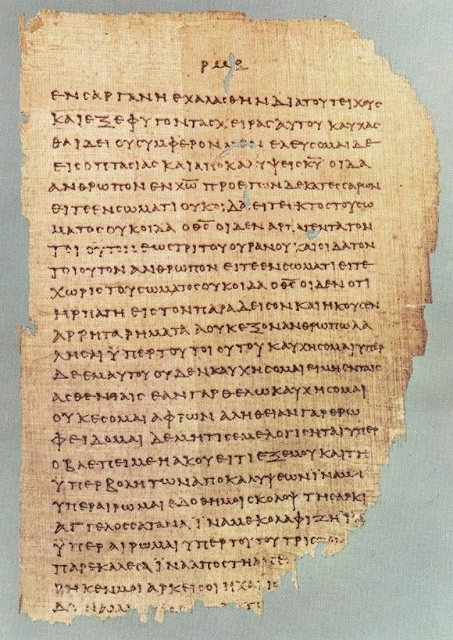 ΕΝ ΣΑΡΓΑΝΗ ΕΧΑΛΑΣΘΗΝ ΔΙΑ ΤΟΥ ΤΕΙΧΟΥΣ
ΚΑΙ ΕΞΕΦΥΓΟΝ ΤΑΣ ΧΕΙΡΑΣ ΑΥΤΟΥ ΚΑΥΧΑΣ
ΘΑΙ ΔΕΙ ΟΥ ΣΥΜΦΕΡΟΝ ΕΛΕΥΣΟΜΑΙ ΔΕ
ΕΙΣ ΟΠΤΑΣΙΑΣ ΚΑΙ ΑΠΟΚΑΛΥΨΕΙΣ Κ̅Υ̅ ΟΙΔΑ
ΑΝΘΡΩΠΟΝ ΕΝ Χ̅Ω̅ ΠΡΟ ΕΤΩΝ ΔΕΚΑΤΕΣΣΑΡΩΝ
ΕΙΤΕ ΕΝ ΣΩΜΑΤΙ ΟΥΚ ΟΙΔΑ ΕΙΤΕ ΕΚΤΟΣ ΤΟΥ ΣΩ
ΜΑΤΟΣ ΟΥΚ ΟΙΔΑ Ο Θ̅Σ̅ ΟΙΔΕΝ ΑΡΠΑΓΕΝΤΑ ΤΟΝ
ΤΟΙΟΥΤΟΝ ΕΩΣ ΤΡΙΤΟΥ ΟΥΡΑΝΟΥ ΚΑΙ ΟΙΔΑ ΤΟΝ
ΤΟΙΟΥΤΟΝ ΑΝΘΡΩΠΟΝ ΕΙΤΕ ΕΝ ΣΩΜΑΤΙ ΕΙΤΕ
ΧΩΡΙΣ ΤΟΥ ΣΩΜΑΤΟΣ ΟΥΚ ΟΙΔΑ Ο Θ̅Σ̅ ΟΙΔΕΝ ΟΤΙ
ΗΡΠΑΓΗ ΕΙΣ ΤΟΝ ΠΑΡΑΔΕΙΣΟΝ ΚΑΙ ΗΚΟΥΣΕΝ
ΑΡΡΗΤΑ ΡΗΜΑΤΑ Α ΟΥΚ ΕΞΟΝ ΑΝΘΡΩΠΩ ΛΑ
ΛΗΣΑΙ ΫΠΕΡ ΤΟΥ ΤΟΙΟΥΤΟΥ ΚΑΥΧΗΣΟΜΑΙ ΫΠΕΡ
ΔΕ ΕΜΑΥΤΟΥ ΟΥΔΕΝ ΚΑΥΧΗΣΟΜΑΙ ΕΙ ΜΗ ΕΝ ΤΑΙΣ
ΑΣΘΕΝΕΙΑΙΣ ΕΑΝ ΓΑΡ ΘΕΛΩ ΚΑΥΧΗΣΟΜΑΙ
ΟΥΚ ΕΣΟΜΑΙ ΑΦΡΩΝ ΑΛΗΘΕΙΑΝ ΓΑΡ ΕΡΩ
ΦΕΙΔΟΜΑΙ ΔΕ ΜΗ ΤΙΣ ΕΜΕ ΛΟΓΙΣΗΤΑΙ ΫΠΕΡ
Ο ΒΛΕΠΕΙ ΜΕ Η ΑΚΟΥΕΙ ΤΙ ΕΞ ΕΜΟΥ ΚΑΙ ΤΗ
ΫΠΕΡΒΟΛΗ ΤΩΝ ΑΠΟΚΑΛΥΨΕΩΝ ΪΝΑ ΜΗ
ΥΠΕΡΑΙΡΩΜΑΙ ΕΔΟΘΗ ΜΟΙ ΣΚΟΛΟΨ ΤΗ ΣΑΡΚΙ
ΑΓΓΕΛΟΣ ΣΑΤΑΝΑ ΪΝΑ ΜΕ ΚΟΛΑΦΙΖΗ Ϊ
ΫΠΕΡΑΙΡΩΜΑΙ ΥΠΕΡ ΤΟΥΤΟΥ ΤΡΙΣ
ΠΑΡΕΚΑΛΕΣΑ ΪΝΑ ΑΠΟΣΤΗ
ΡΗΚΕΝ ΜΟΙ ΑΡΚΕΙ ΣΟΙ Η ΧΑΡΙΣ